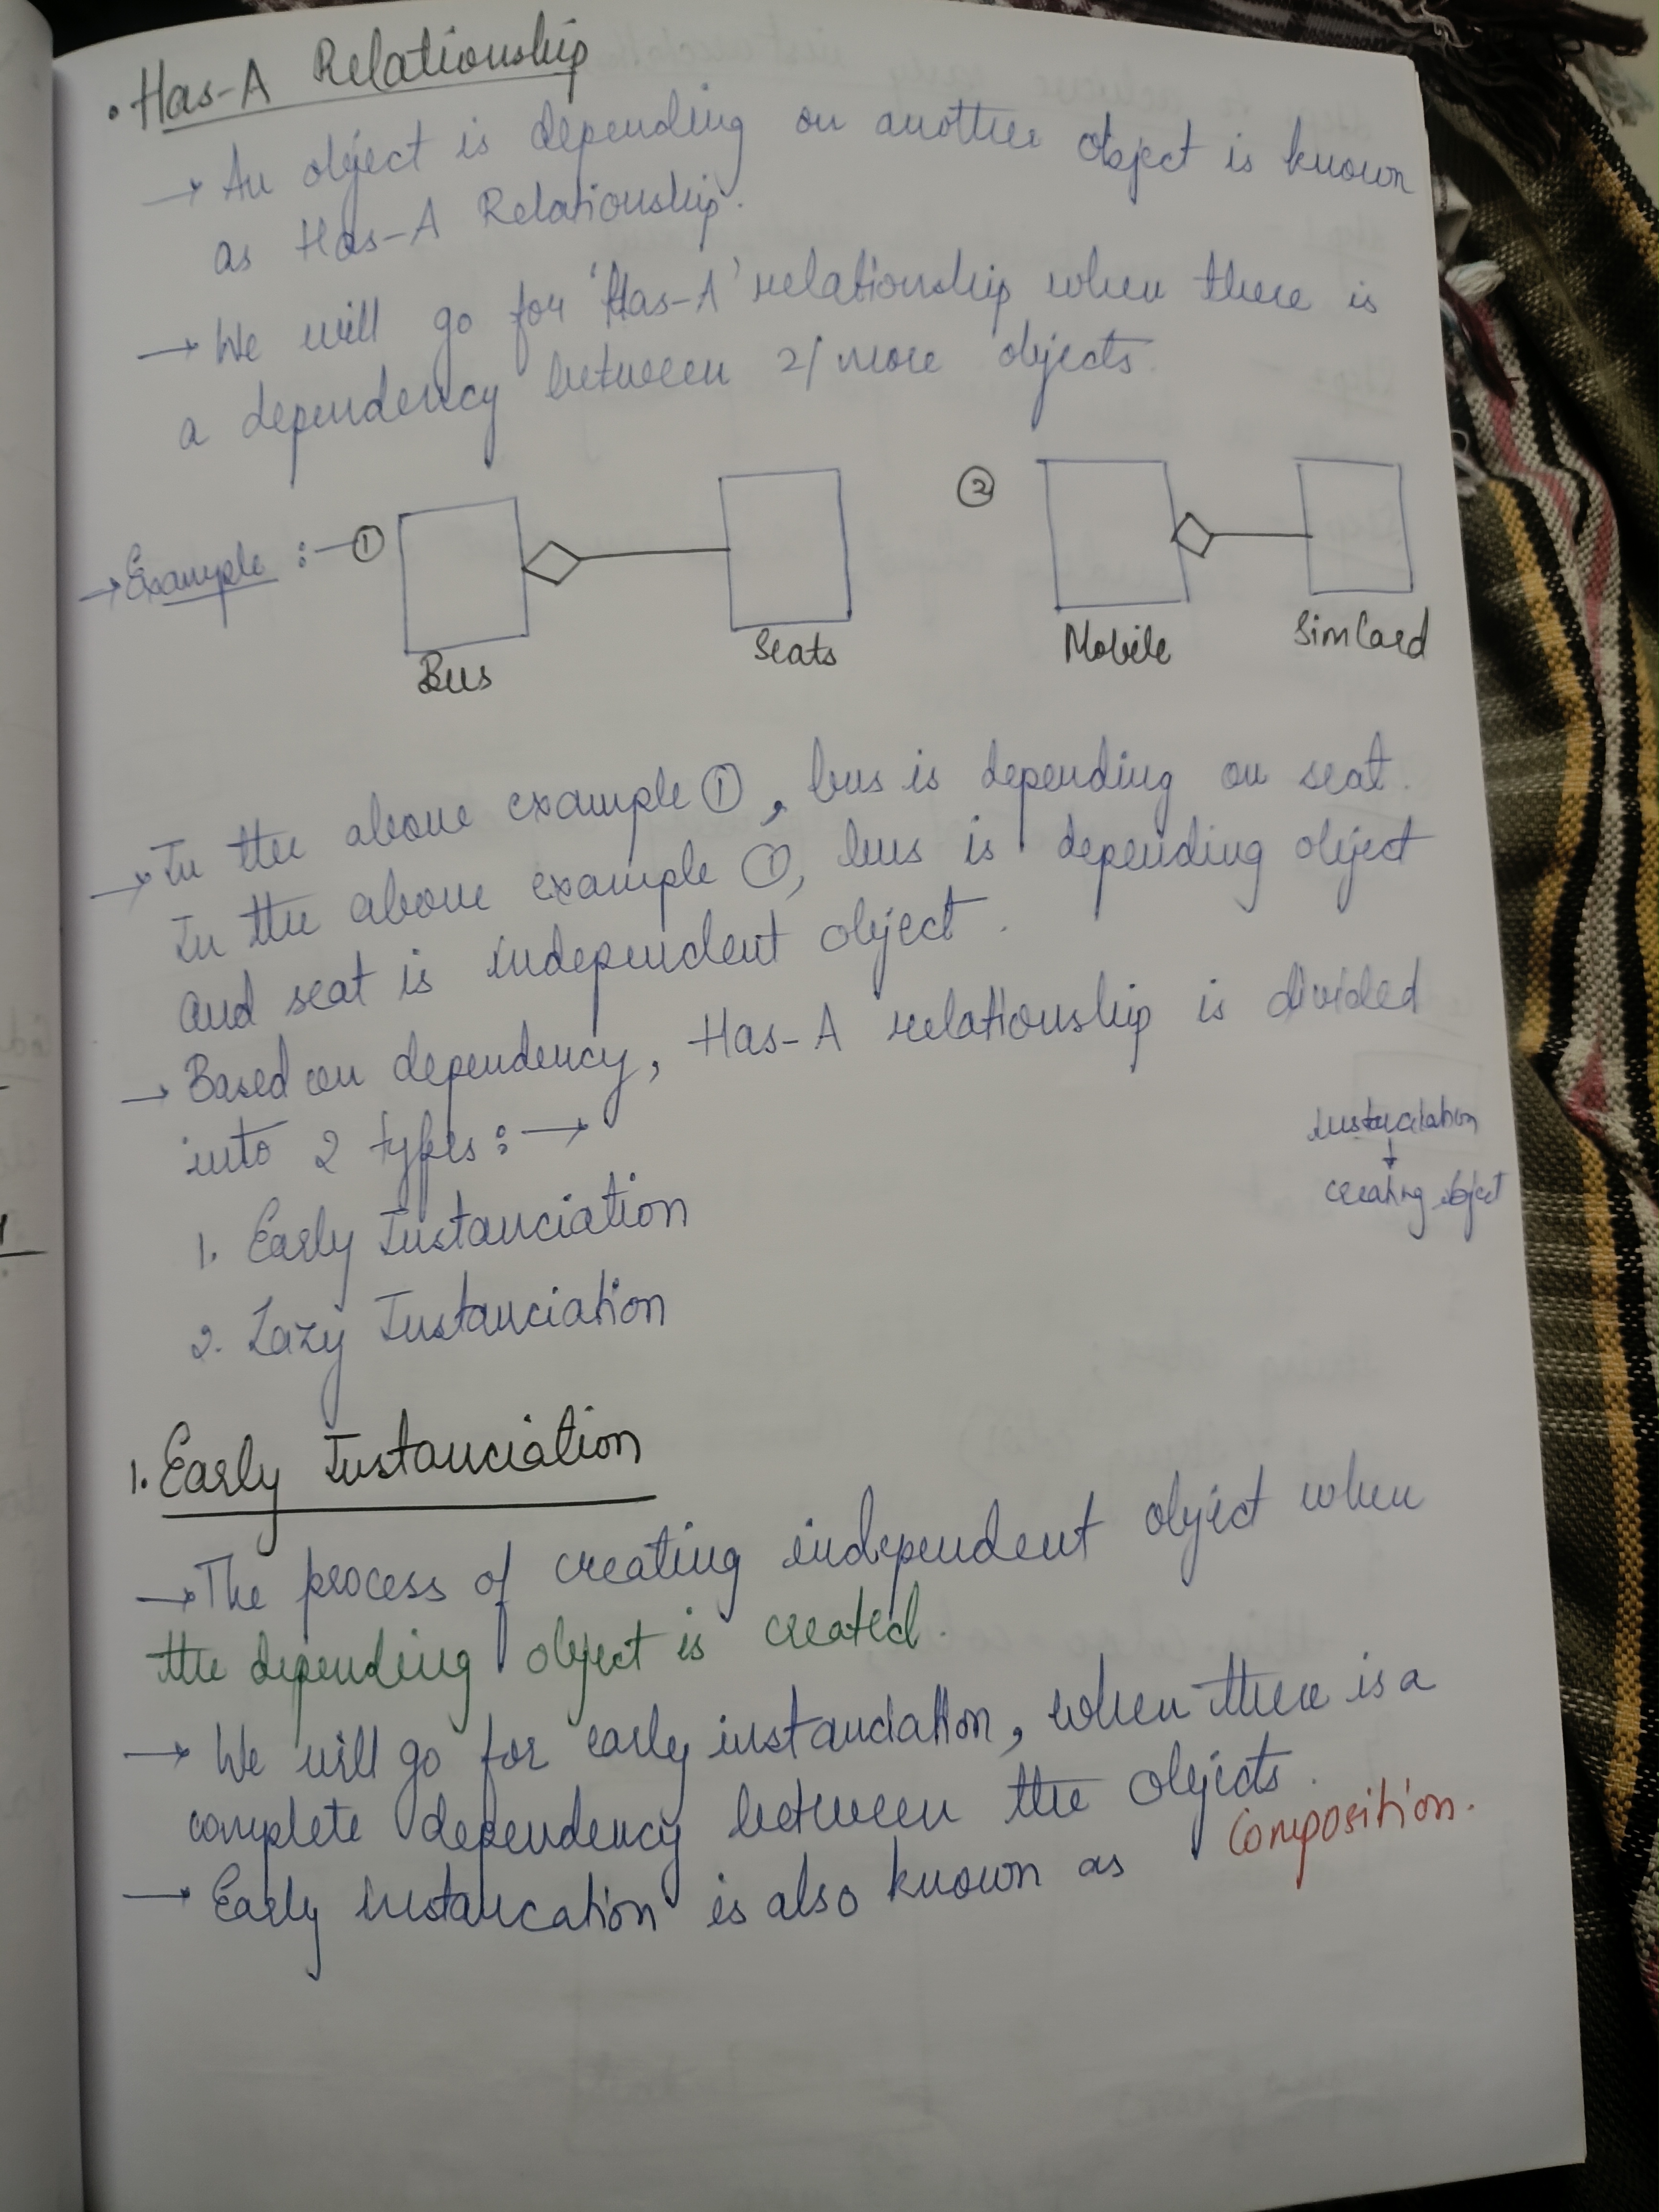 • Has-A Relationship
→ An object is depending on another object is known
as Has-A Relationship.
→ We will go for 'Has-A' relationship when there is
a dependency between 2/more objects.
→ Example :- ① ②
Bus Seats Mobile SimCard
→ In the above example ①, bus is depending on seat.
In the above example ①, bus is depending object
and seat is independent object.
→ Based on dependency, Has-A relationship is divided
into 2 types :→
instanciation
↓
creating object
1. Early Instanciation
2. Lazy Instanciation
1. Early Instanciation
→ The process of creating independent object when
the depending object is created.
→ We will go for early instanciation, when there is a
complete dependency between the objects.
→ Early instancation is also known as Composition.